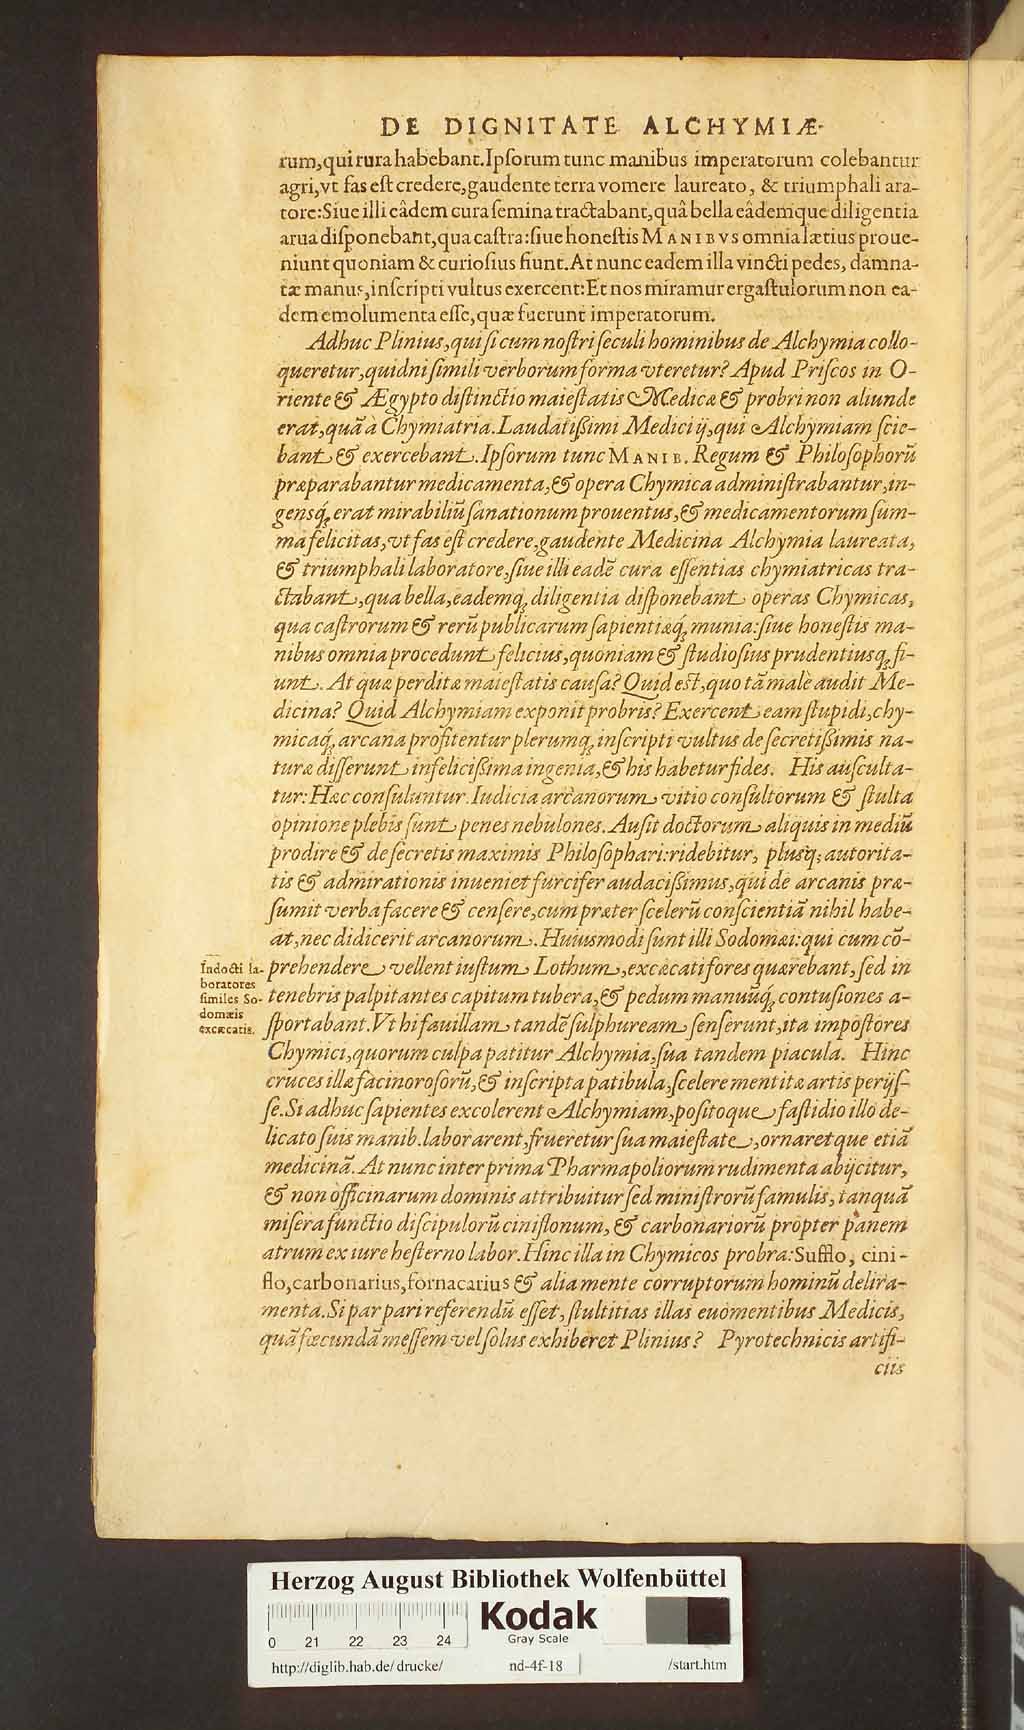 DE DIGNITATE ALCHYMIÆ.
rum,qui rura habebant.Ipſorum tunc manibus imperatorum colebantur
agri,vt fas eſt credere,gaudente terra vomere laureato, & triumphali ara-
tore:Siue illi eâdem cura ſemina tractabant,quâ bella eâdemque diligentia
arua diſponebant,qua caſtra:ſiue honeſtis MANIBVS omnia lætius proue-
niunt quoniam & curioſius fiunt.At nunc eadem illa vincti pedes, damna-
tæ manus,inſcripti vultus exercent:Et nos miramur ergaſtulorum non ea-
dem emolumenta eſſe,quæ fuerunt imperatorum.
Adhuc Plinius,qui ſi cum noſtri ſeculi hominibus de Alchymia collo-
queretur,quidni ſimili verborum forma vteretur? Apud Priſcos in O-
riente & Ægypto diſtinctio maieſtatis Medicæ & probri non aliunde
erat,quã à Chymiatria.Laudatißimi Medici ij,qui Alchymiam ſcie-
bant & exercebant.Ipſorum tunc MANIB. Regum & Philoſophorũ
præparabantur medicamenta,& opera Chymica adminiſtrabantur,in-
gensq́; erat mirabiliũ ſanationum prouentus,& medicamentorum ſum-
ma felicitas,vt fas eſt credere,gaudente Medicina Alchymia laureata,
& triumphali laboratore,ſiue illi eadẽ cura eſſentias chymiatricas tra-
ctabant,qua bella,eademq́; diligentia diſponebant operas Chymicas,
qua caſtrorum & rerũ publicarum ſapientiæq́; munia:ſiue honeſtis ma-
nibus omnia procedunt felicius,quoniam & ſtudioſius prudentiusq́; fi-
unt. At quæ perditæ maieſtatis cauſa? Quid eſt,quo tã malè audit Me-
dicina? Quid Alchymiam exponit probris? Exercent eam ſtupidi,chy-
micaq́; arcana profitentur plerumq́; inſcripti vultus de ſecretißimis na-
turæ diſſerunt infeliciſſima ingenia,& his habetur fides. His auſculta-
tur:Hæc conſuluntur.Iudicia arcanorum vitio conſultorum & ſtulta
opinione plebis ſunt penes nebulones. Auſit doctorum aliquis in mediũ
prodire & de ſecretis maximis Philoſophari:ridebitur, plusq́; autorita-
tis & admirationis inueniet furcifer audacißimus,qui de arcanis præ-
ſumit verba facere & cenſere,cum præter ſcelerũ conſcientiã nihil habe-
at,nec didicerit arcanorum. Huiusmodi ſunt illi Sodomæi:qui cum cõ-
prehendere vellent iuſtum Lothum,excæcati fores quærebant,ſed in
tenebris palpitantes capitum tubera,& pedum manuũq́; contuſiones a-
ſportabant.Vt hi fauillam tandẽ ſulphuream ſenſerunt,ita impoſtores
Chymici,quorum culpa patitur Alchymia,ſua tandem piacula. Hinc
cruces illæ facinoroſorũ,& inſcripta patibula,ſcelere mentitæ artis perijſ-
ſe.Si adhuc ſapientes excolerent Alchymiam,poſitoque faſtidio illo de-
licato ſuis manib.laborarent,frueretur ſua maieſtate,ornaretque etiã
medicinã. At nunc inter prima Pharmapoliorum rudimenta abijcitur,
& non officinarum dominis attribuitur ſed miniſtrorũ famulis, tanquã
miſera functio diſcipulorũ ciniſlonum,& carbonariorũ propter panem
atrum ex iure heſterno labor.Hinc illa in Chymicos probra:Sufflo, cini-
flo,carbonarius,fornacarius & alia mente corruptorum hominũ delira-
menta.Si par pari referendũ eſſet,ſtultitias illas euomentibus Medicis,
quã fœcundã meſſem vel ſolus exhiberet Plinius? Pyrotechnicis artifi-
ciis
Indocti la-
boratores
ſimiles So-
domæis
excæcatis.
Herzog August Bibliothek Wolfenbüttel
Kodak
Gray Scale
0 21 22 23 24
http://diglib.hab.de/drucke/ nd-4f-18 /start.htm